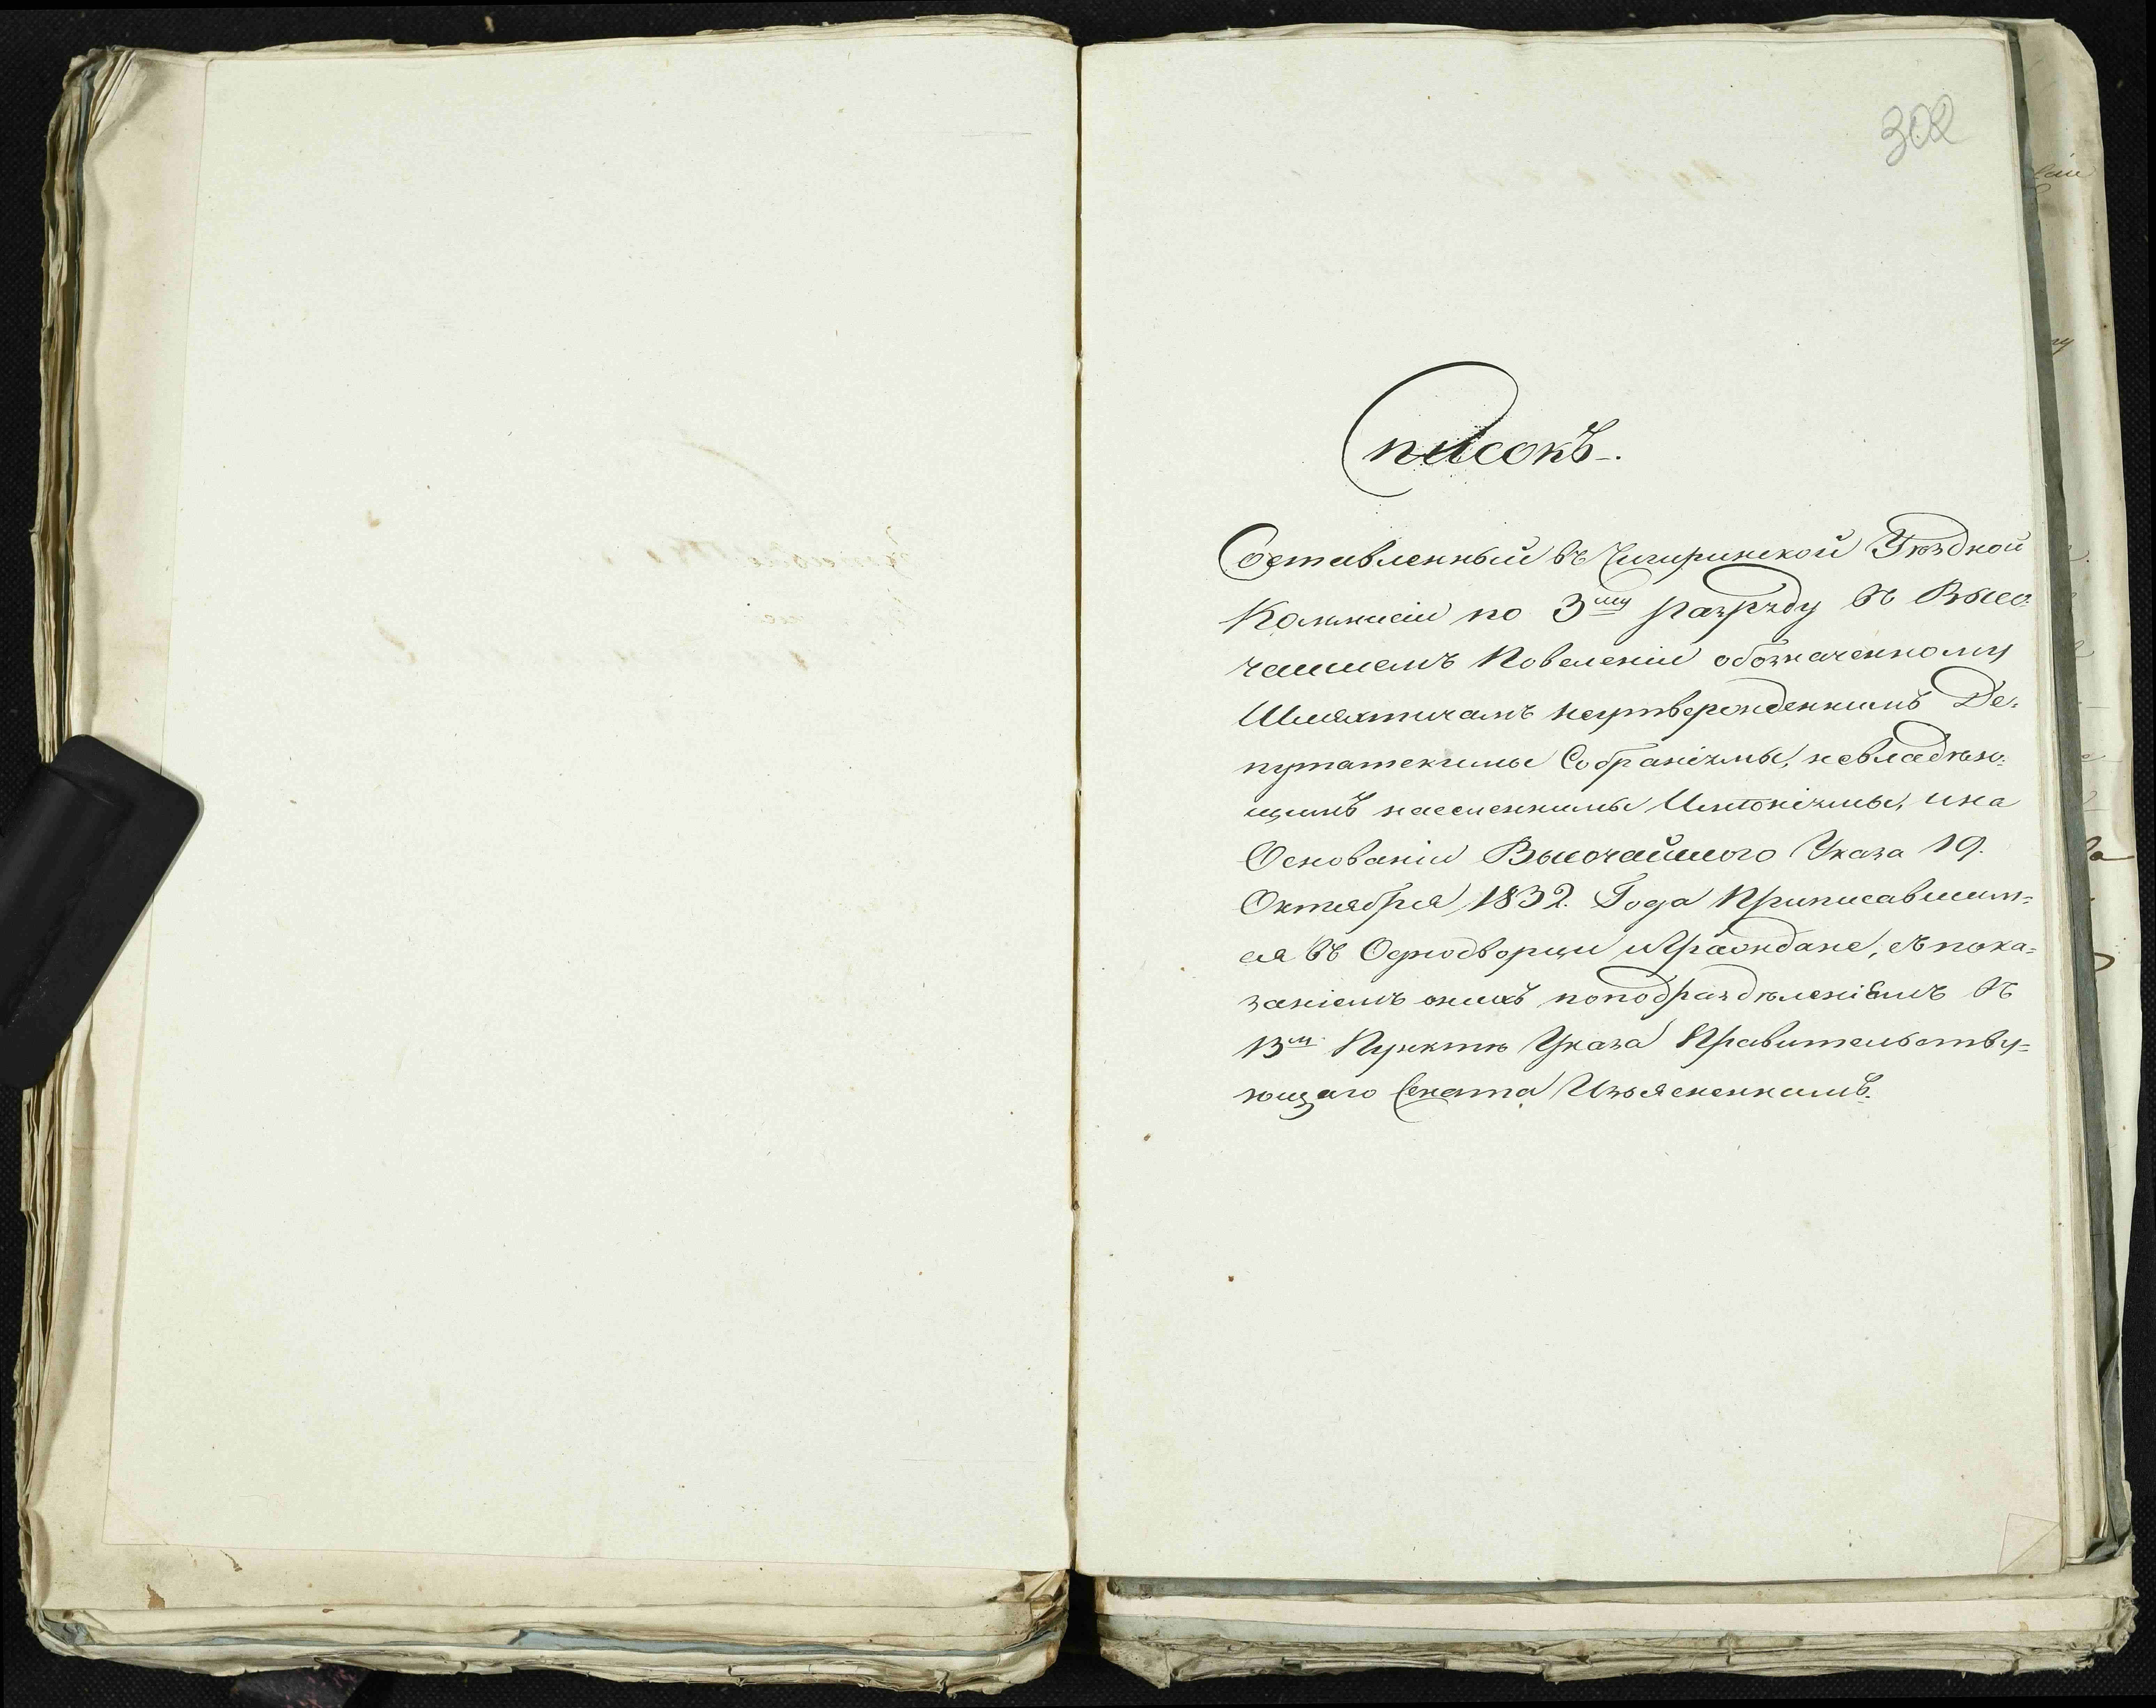 302
Списокъ.
Составленный въ Чигиринской Уѣздной
Коммисіи по 3му разряду въ Высо-
чаишемъ Повеленіи обозначенному
Шляхтичамъ неутвержденнымъ Де-
путатскимы Собраніямы, невладѣю-
щимъ населенными Имѣніямы, и на
Основаніи Высочайшого Указа 19.
Октября 1832. Года Приписавшим-
ся въ Однодворцы и Граждане, съ пока-
заніемъ онихъ поподраздѣленіемъ въ
13м Пунктѣ Указа Правительству-
ющаго Сената Изъясненнимъ.